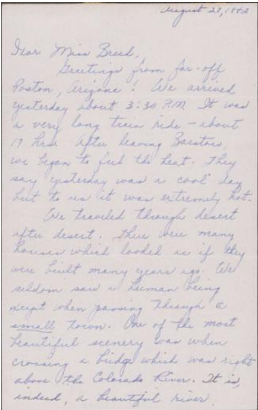 August 28, 1942
Dear Miss Breed,
Greetings from far-off
Poston, Arizona! We arrived
yesterday about 3:30 P.M. It was
a very long train ride - about
17 hrs. After leaving Barstow
we began to feel the heat. They
say yesterday was a "cool" day
but to us it was extremely hot.
We traveled through desert
after desert. There were many
houses which looked as if they
were built many years ago. We
seldom saw a human being
except when passing through a
small town. One of the most
beautiful scenery was when
crossing a bridge which was right
above the Colorado River. It is
indeed, a beautiful river.